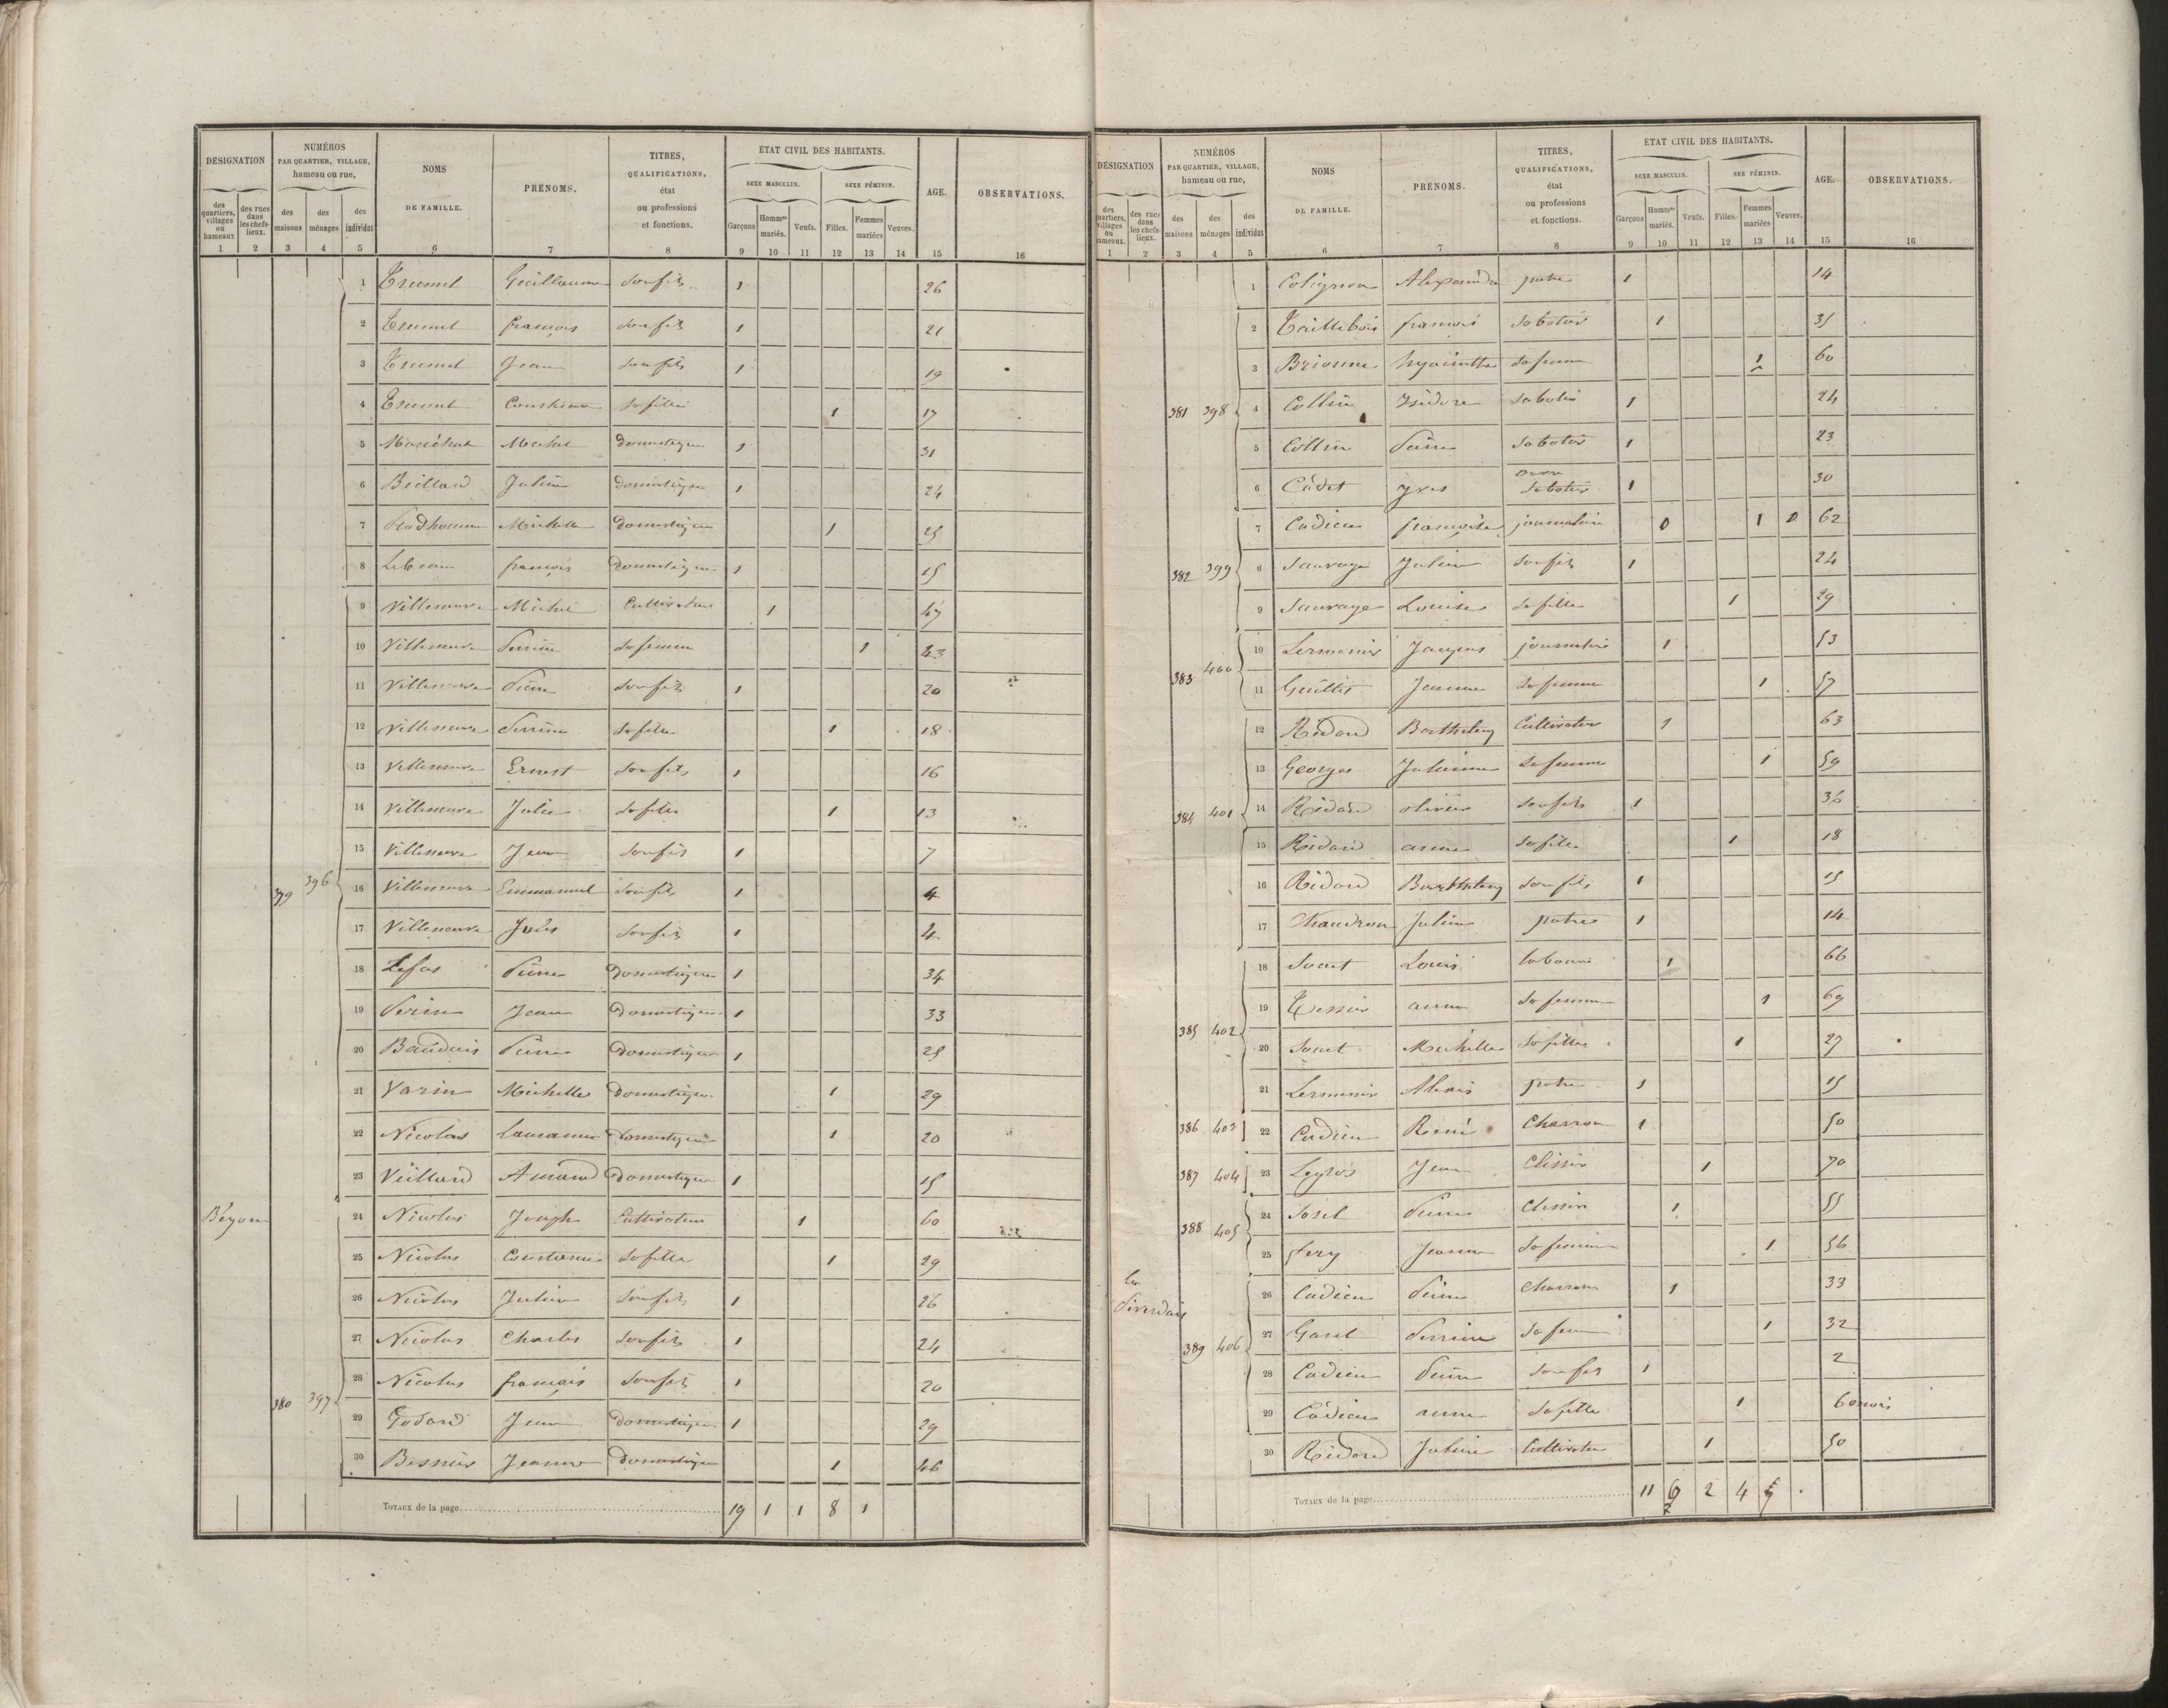 DÉSIGNATION
NUMÉROS PAR QUARTIER, VILLAGE, hameau ou rue,
NOMS DE FAMILLE.
PRENOMS.
TITRES, QUALIFICATIONS, état ou professions et fonctions.
ETAT CIVIL DES HABITANTS.
SEXE MASCULIN. SEXE FÉMININ.
AGE.
OBSERVATIONS.
des quartiers, villages ou hameaux des rues dans les chefs-lieux. des maisons des ménages des individus Garçons Hommes mariés. Veufs. Filles. Femmes mariées Veuves.
1 2 3 4 5 6 7 8 9 10 11 12 13 14 15 16
1 Guillaume son fils 1 26
2 françois son fils 1 21
3 Jean son fils 1 19
4 sa fille 1 17
5 Maréchal Michel domestique 1 31
6 Julien domestique 1 24
7 Michelle domestique 1 25
8 françois domestique 1 15
9 Villeneuve Michel Cultivateur 1 47
10 Villeneuve Perrine sa femme 1 43
11 Villeneuve Pierre son fils 1 20
12 Villeneuve Perrine sa fille 1 18
13 Villeneuve Ernest son fils 1 16
14 Villeneuve Julie sa fille 1 13
15 Villeneuve Jean son fils 1 7
379 396 16 Villeneuve Emmanuel son fils 1 4
17 Villeneuve Jules son fils 1 4
18 Lefas Pierre domestique 1 34
19 Perin Jean Domestique 1 33
20 Baudais Pierre Domestique 1 25
21 Varin Michelle Domestique 1 29
22 Nicolas Domestique 1 20
23 Veillard Amand Domestique 1 15
Béyon 24 Nicolas Joseph Cultivateur 1 60
25 Nicolas Constance sa fille 1 29
26 Nicolas Julien son fils 1 26
27 Nicolas Charles son fils 1 24
28 Nicolas français son fils 1 20
380 397
29 Godard Jean domestique 1 29
30 Besnier Jeanne Domestique 1 46
TOTAUX de la page 19 1 1 8 1
DÉSIGNATION
NUMÉROS PAR QUARTIER, VILLAGE, hameau ou rue,
NOMS DE FAMILLE.
PRENOMS.
TITRES, QUALIFICATIONS, état ou professions et fonctions.
ETAT CIVIL DES HABITANTS.
SEXE MASCULIN. SEE FÉMININ.
AGE.
OBSERVATIONS.
des quartiers, villages ou hameaux. des rues dans les chefs-lieux. des maisons des ménages des individus Garçons Hommes mariés. Veufs. Filles. Femmes mariées Veuves.
1 2 3 4 5 6 7 8 9 10 11 12 13 14 15 16
1 Colignon Alexandre patre 1 14
2 Taillebois francois sabotier 1 35
3 Brionne hyacinthe sa femme 1 60
381 398 4 Collin Isidore sabotier 1 24
5 Collin Pierre sabotier 1 23
6 Cadet Yves sabotier 1 30
7 Cadieu françoise journalière 0 1 0 62
382 399 8 Sauvage Julien son fils 1 24
9 Sauvage Louise sa fille 1 29
10 Lermenier Jacques journalier 1 53
383 400
11 Jeanne sa femme 1 57
12 Ridard Barthelemy Cultivateur 1 63
13 Georges Julienne sa femme 1 59
384 401 14 Ridard olivier son fils 1 36
15 Ridard anne sa fille 1 18
16 Ridard Barthelemy son fils 1 15
17 Chaudron Julien patre 1 14
18 Louis 1 66
19 Tessier anne sa femme 1 69
385 402
20 Michelle sa fille 1 27
21 Lermenier Alexis patre 1 15
386 403 22 Cadieu René Charron 1 50
387 404 23 Legros Jean Clissier 1 70
388 405 24 Pierre Clissier 1 55
25 Jeanne sa femme 1 56
26 Cadieu Pierre Charron 1 33
389 406 27 Garel Perrine sa femme 1 32
28 Cadieu Pierre son fils 1 2
29 Cadieu anne sa fille 1 6 mois
30 Ridard Julien Cultivateur 1 50
TOTAUX de la page 11 2 4